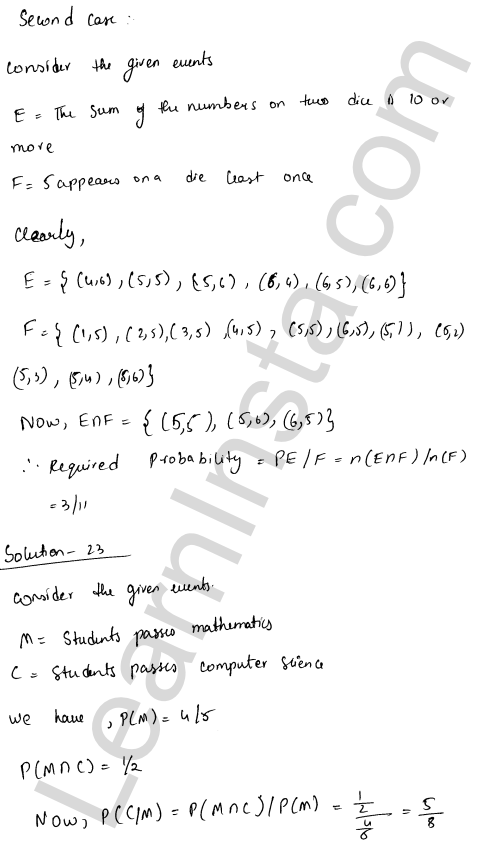 Second Case :
Consider the given events
E = The Sum of the numbers on two dice is 10 or
more
F = 5 appears on a die least once
Clearly,
E = { (4,6), (5,5), (5,6), (6,4), (6,5), (6,6)}
F = { (1,5), (2,5), (3,5), (4,5), (5,5), (6,5), (5,1), (5,2)
(5,3), (5,4), (5,6)}
Now, E∩F = { (5,5), (5,6), (6,5)}
∴ Required Probability = PE/F = n(E∩F)/n(F)
= 3/11
Solution - 23
Consider the given events.
M = Students passes mathematics
C = Students passes computer science
We have, P(M) = 4/5
P(M∩C) = 1/2
Now, P(C/M) = P(M∩C)/P(M) = 1/2 / 4/5 = 5/8
LearnInsta.com